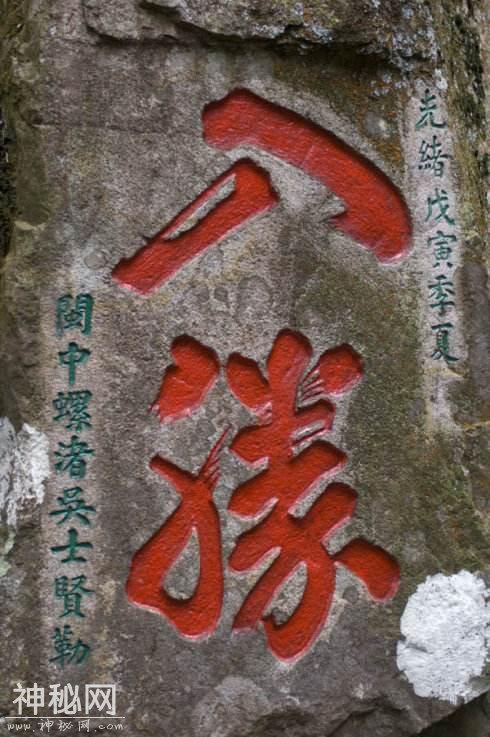 光緒戊寅季夏
入勝
閩中螺渚吳士賢勒
神秘网
www.神秘网.com